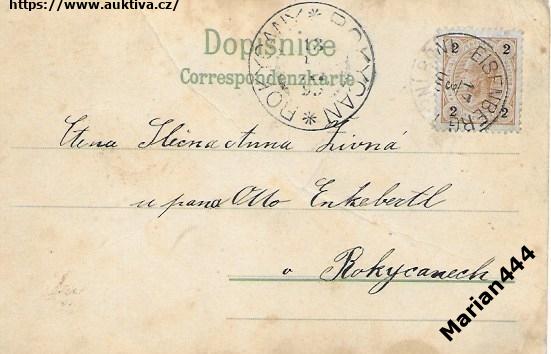 https://www.auktiva.cz/
Dopisnice
Correspondenzkarte
ROKYCANY * ROKYCAN *
EISENBERG
2 2
2 2
Ctená Slečna Anna Živná
u pana Otto Enkebertl
v Rokycanech
Marian444